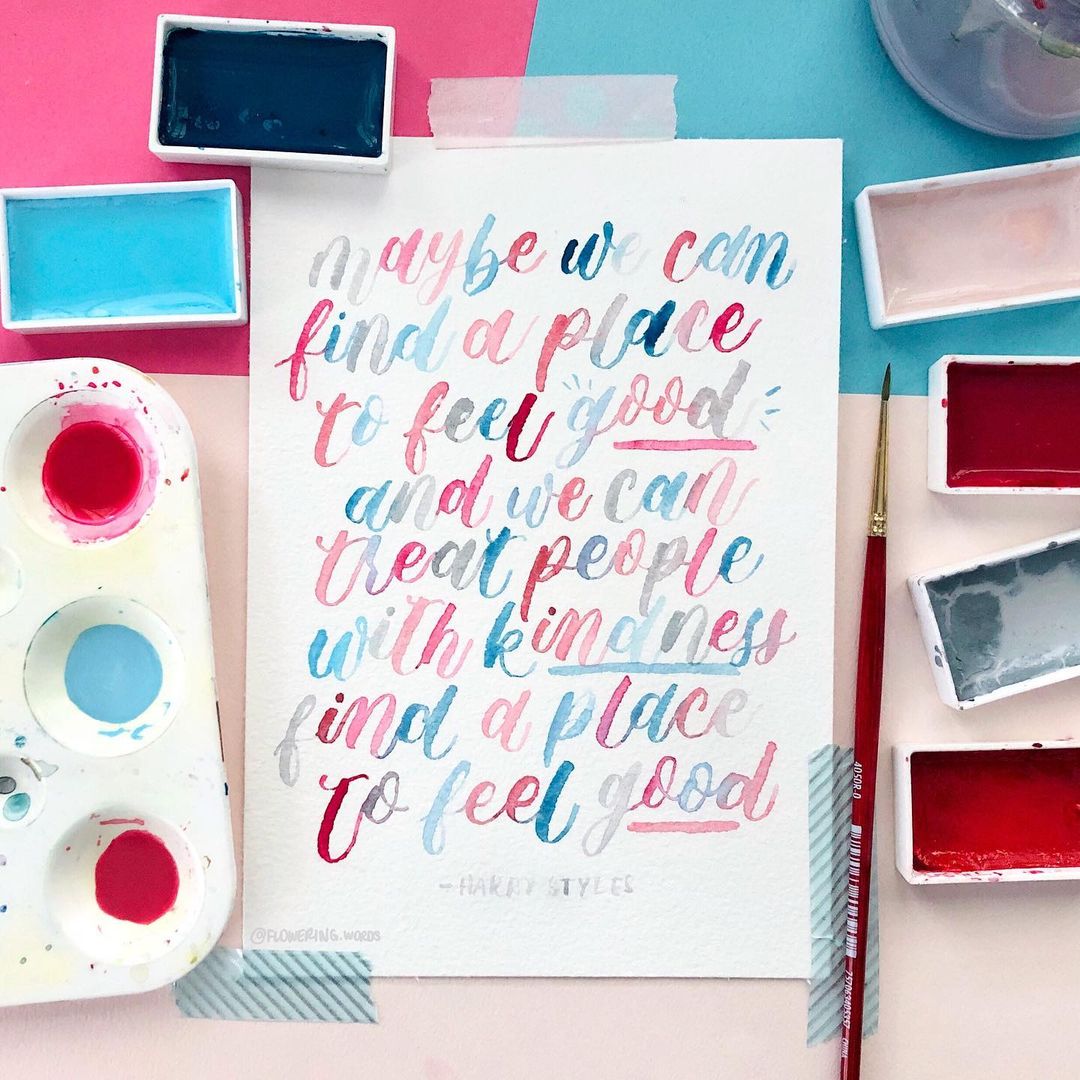 maybe we can
find a place
to feel good
and we can
treat people
with kindness
find a place
to feel good
- HARRY STYLES
@FLOWERING.WORDS
4050R-0
757063405357
CHINA